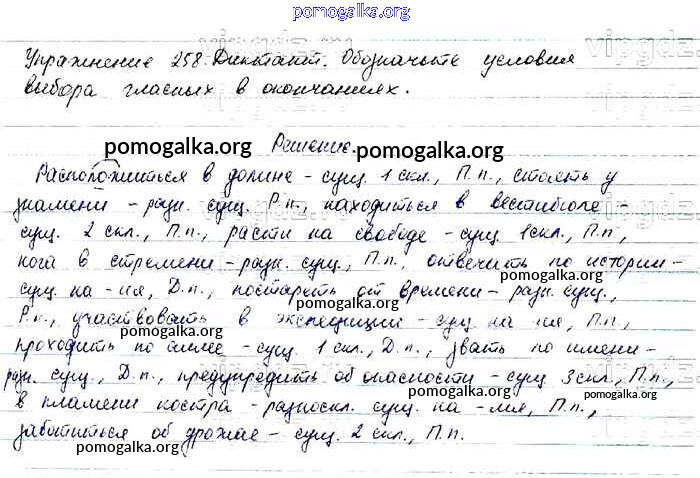 pomogalka.org
Упражнение 258. Диктант. Обозначьте условия
vipgdz
выбора гласных в окончаниях.
pomogalka.org Решение. pomogalka.org
Расположиться в долине – сущ. 1 скл., П.п., стоять у
знамени – разн. сущ. Р.п., находиться в вестибюле –
сущ. 2 скл., П.п., расти на свободе – сущ. 1 скл., П.п.,
нога в стремени – разн. сущ., П.п., отвечать по истории –
pomogalka.org
сущ. на -ия, Д.п., постареть от времени – разн. сущ.,
Р.п., участвовать в экспедиции – сущ. на -ия, П.п.,
pomogalka.org
проходить по аллее – сущ. 1 скл., Д.п., звать по имени –
разн. сущ., Д.п., предупредить об опасности – сущ. 3 скл., П.п.,
pomogalka.org
в пламени костра – разноскл. сущ. на -мя, П.п.,
заботиться об урожае – сущ. 2 скл., П.п.
pomogalka.org
pomogalka.org